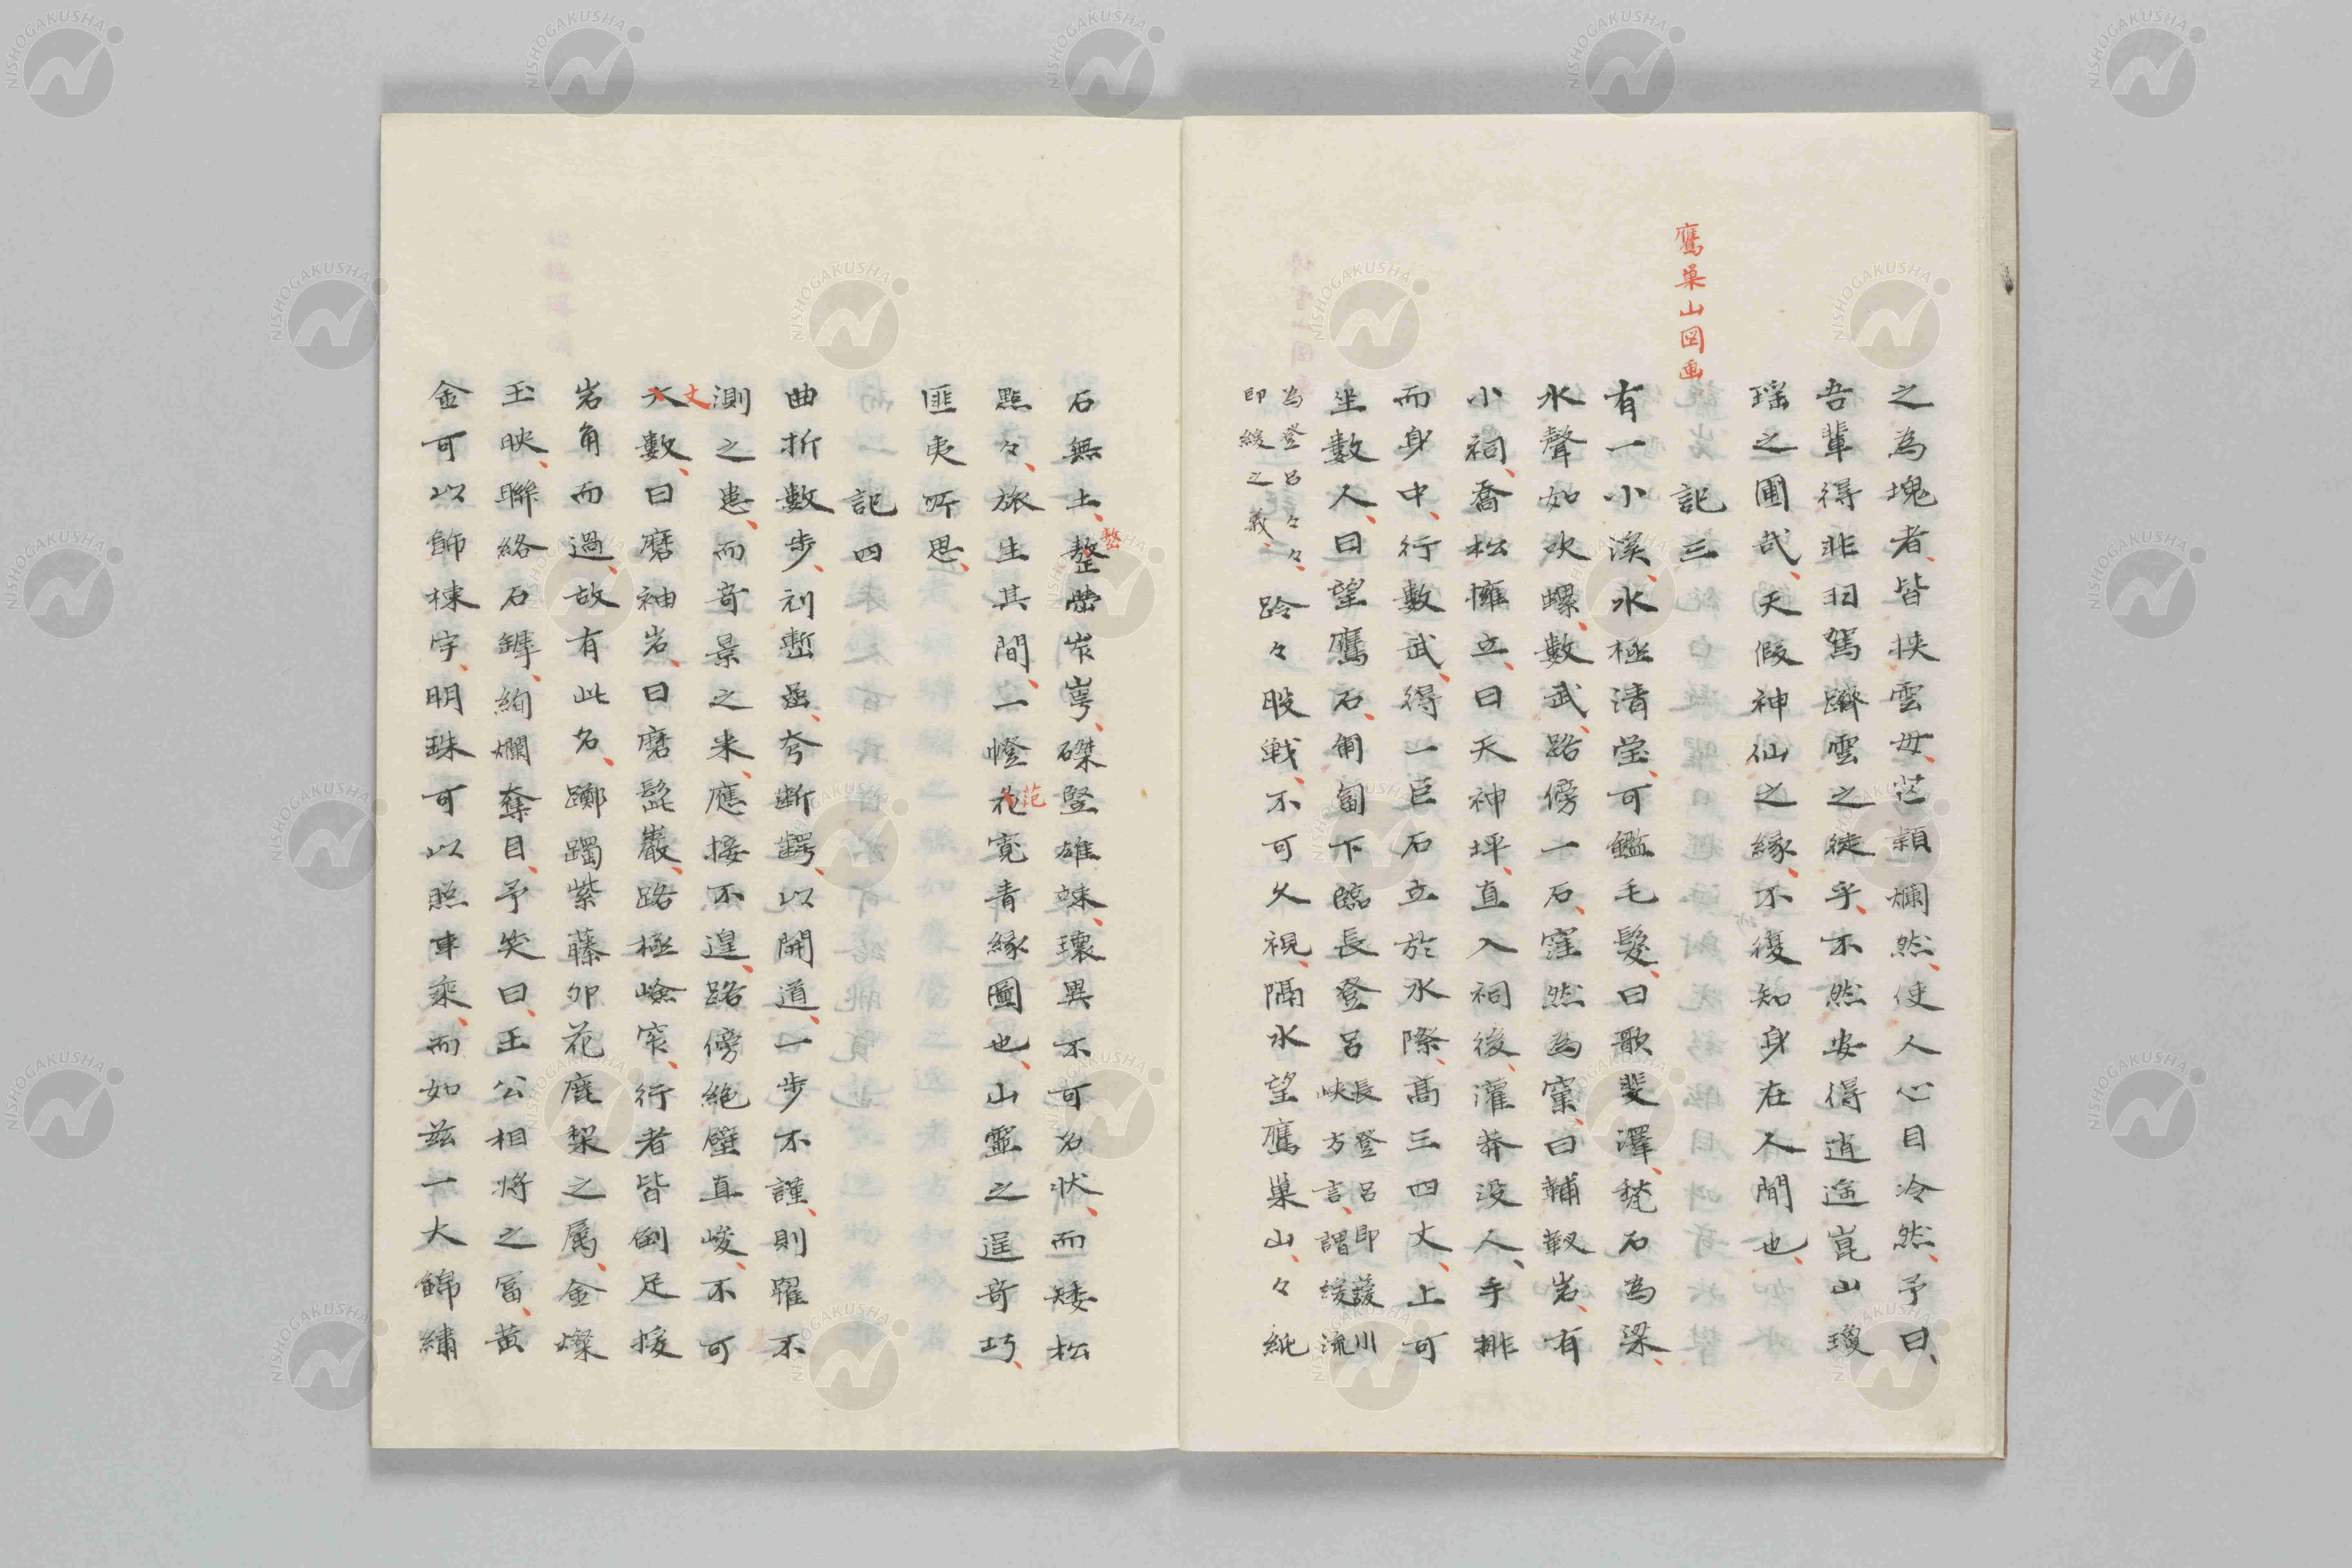 之為塊者、皆挾雲母、芒頴爛然、使人心目冷然、予曰、
吾輩得非羽駕躋雲之徒乎、不然安得逍遥崑山瓊
瑶之圃哉、天假神仙之緣、不復知身在人間也、
鷹巣山図画
記三
有一小溪、水極清瑩、可鑑毛髮、曰歌斐澤、甃石為梁、
水聲如吹螺、數武、路傍一石、窪然為窠、曰輔靫岩、有
小祠、喬松擁立、曰天神坪、直入祠後、灌莽没人、手排
而身中、行數武、得一巨石立於水際、高三四丈、上可
坐數人、曰望鷹石、匍匐下臨長登呂
長登呂即護川
峡方言、謂緩流
為登呂々々々、
即緩之義、
跉々股戦、不可久視、隔水望鷹巣山、々純
石無土、
整
嶅
嵤岝崿、磔竪雄竦、瓌異不可名状、而矮松
點々、旅生其間、一幢
花
范
寛青緑圖也、山靈之逞奇巧、
匪夷所思、
記四
曲折數步、刓塹壘、夸断齶、以開道、一步不謹、則躍不
測之患、而奇景之来、應接不遑、路傍絶壁直峻、不可
大
丈
數、曰磨袖岩、曰磨髭巌、路極嶮窄、行者皆倒足接
岩角而過、故有此名、躑躅紫藤卯花鹿梨之属、金燦
玉映、聯絡石罅、絢爛奪目、予笑曰、王公相将之冨、黄
金可以飾棟宇、明珠可以照車乘、而如茲一大錦繍